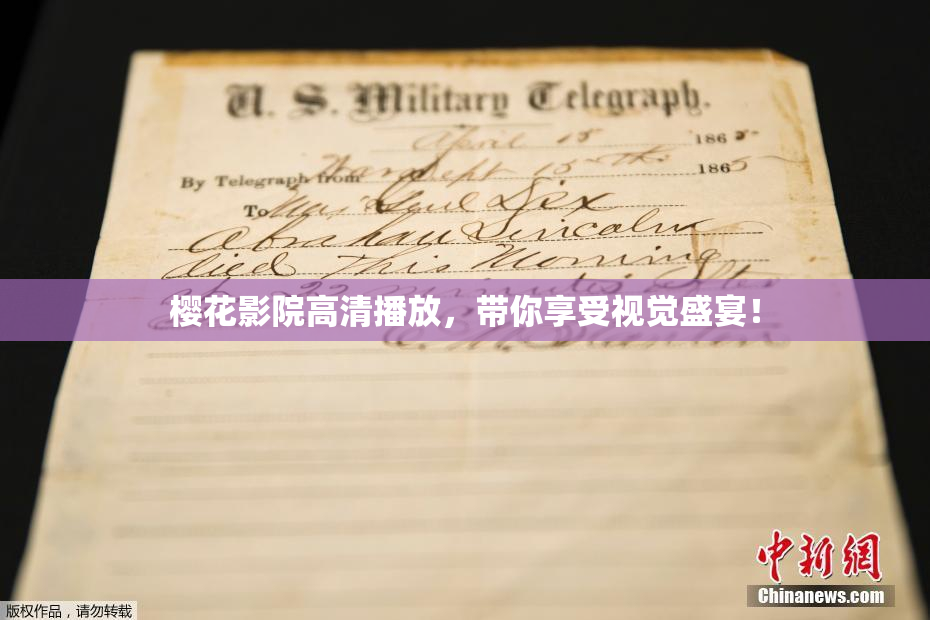 U. S. Military Telegraph.
April 15 1865
By Telegraph from War Dept 15th 1865
To Maj Genl Dix
Abraham Lincoln
died This Morning
at 22 minutes after
樱花影院高清播放，带你享受视觉盛宴！
E. M. Stanton
中新网
Chinanews.com
版权作品，请勿转载